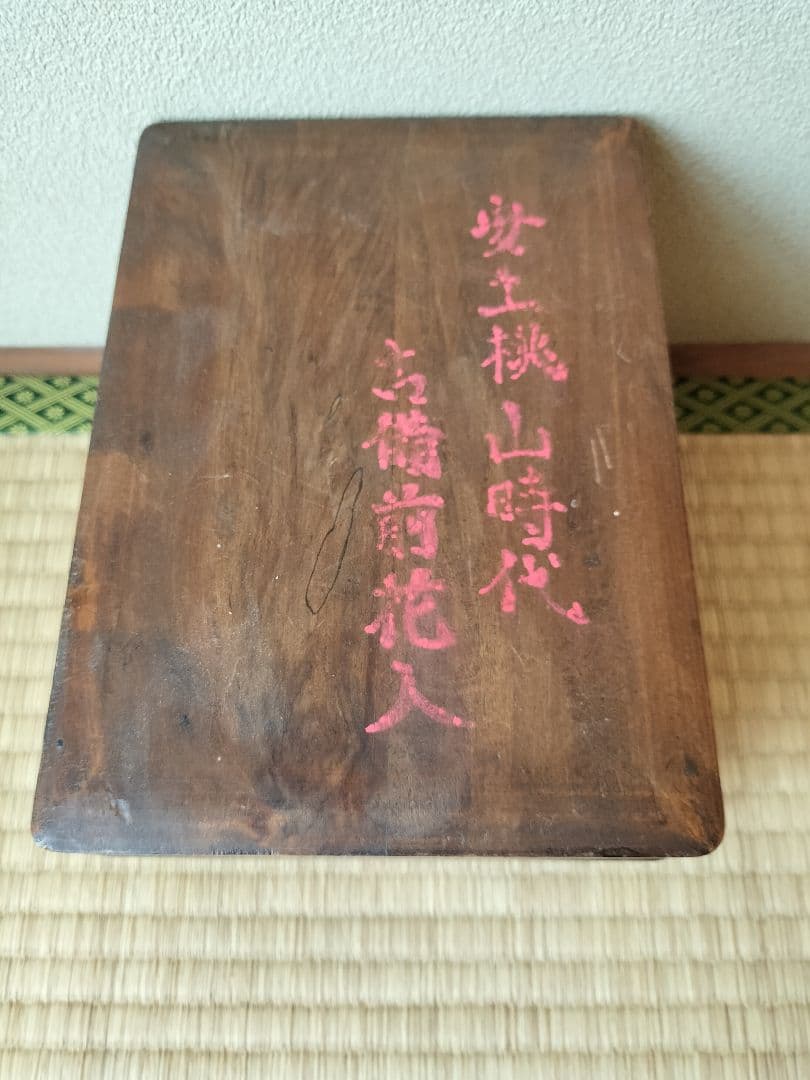 安土桃山時代
古備前花入